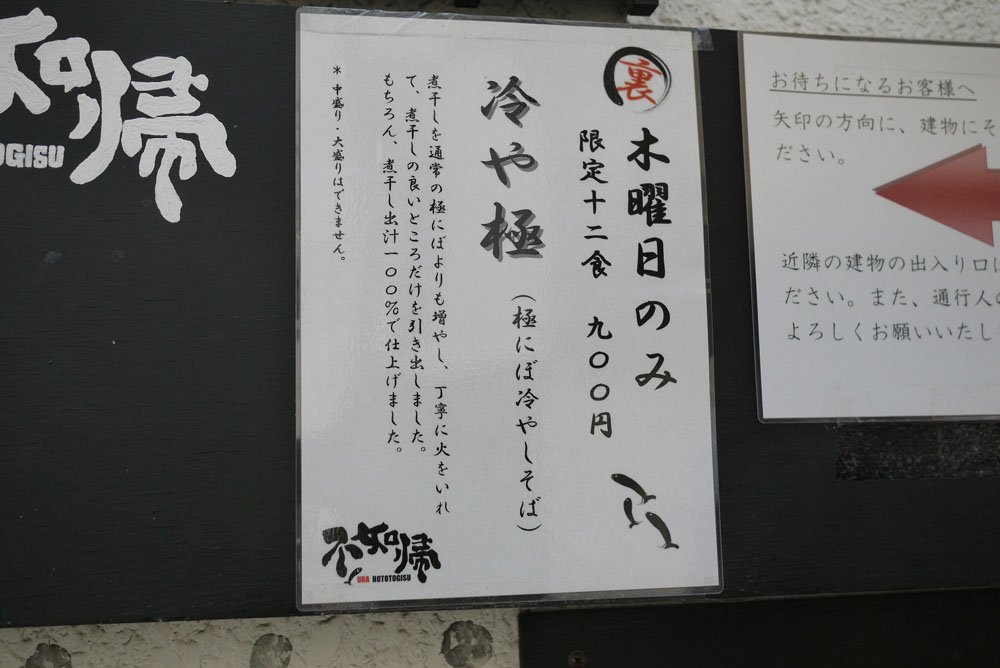 不如帰
OGISU
裏
木曜日のみ
限定十二食 九〇〇円
冷や極
(極にぼ冷やしそば)
煮干しを通常の極にぼよりも増やし、丁寧に火をいれ
て、煮干しの良いところだけを引き出しました。
もちろん、煮干し出汁一〇〇%で仕上げました。
*中盛り・大盛りはできません。
不如帰
URA HOTOTOGISU
お待ちになるお客様へ
矢印の方向に、建物にそ
ださい。
近隣の建物の出入り口に
ださい。また、通行人の
よろしくお願いいたし